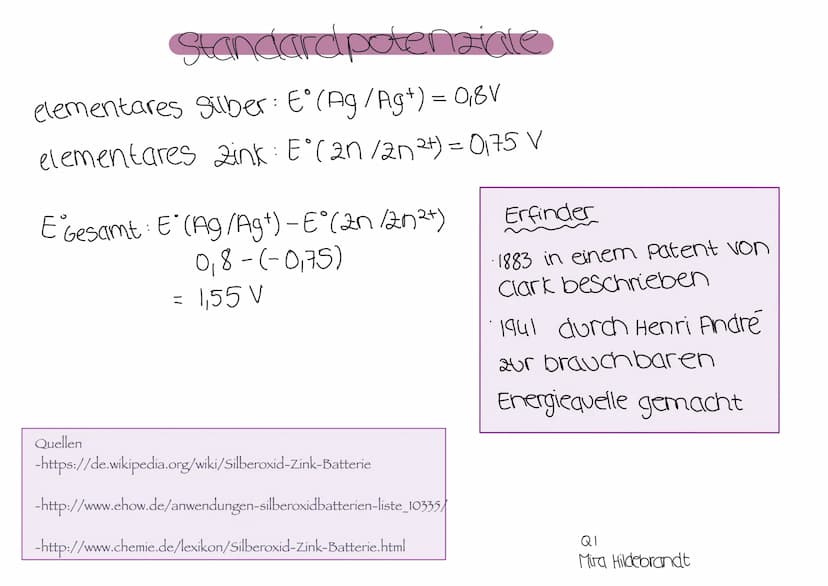 Standardpotenziale
elementares Silber: E°(Ag/Ag⁺) = 0,8V
elementares Zink: E°(Zn/Zn²⁺) = 0,75 V
E°Gesamt: E°(Ag/Ag⁺) – E°(Zn/Zn²⁺)
0,8 – (-0,75)
= 1,55 V
Erfinder
· 1883 in einem Patent von
Clark beschrieben
· 1941 durch Henri André
zur brauchbaren
Energiequelle gemacht
Quellen
-https://de.wikipedia.org/wiki/Silberoxid-Zink-Batterie
-http://www.ehow.de/anwendungen-silberoxidbatterien-liste_10335/
-http://www.chemie.de/lexikon/Silberoxid-Zink-Batterie.html
Q1
Mira Hildebrandt